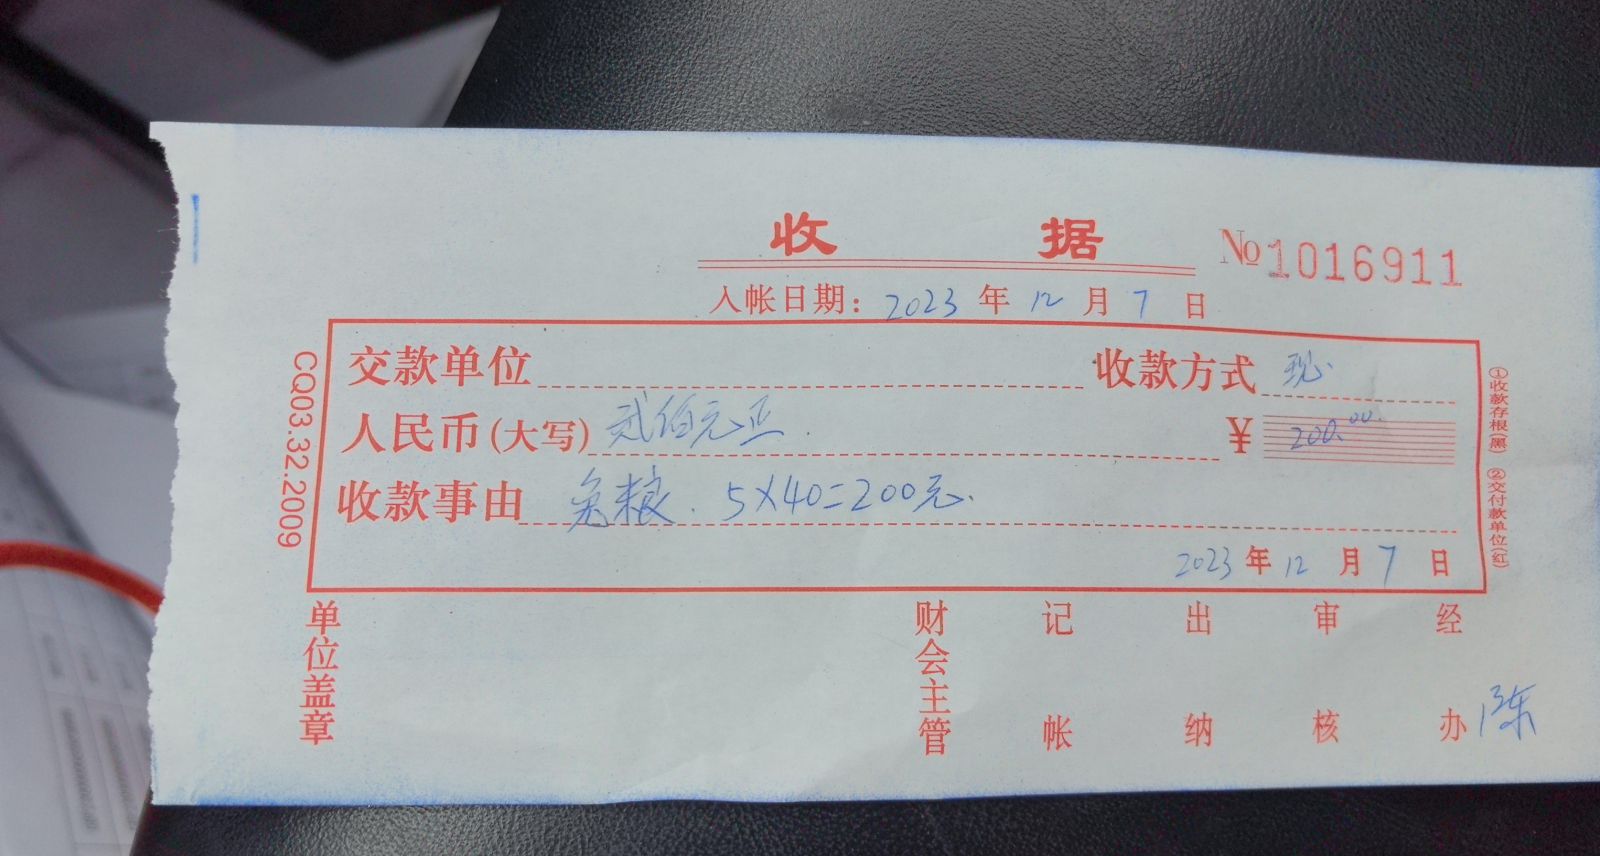 收 据 №1016911
入帐日期：2023 年 12 月 7 日
交款单位 收款方式 现
人民币(大写) 贰佰元正 ¥ 200.00
收款事由 兔粮. 5×40=200元.
2023 年 12 月 7 日
CQ03.32.2009
①收款存根(黑) ②交付款单位(红)
单位盖章 财会主管 记帐 出纳 审核 经办 陈